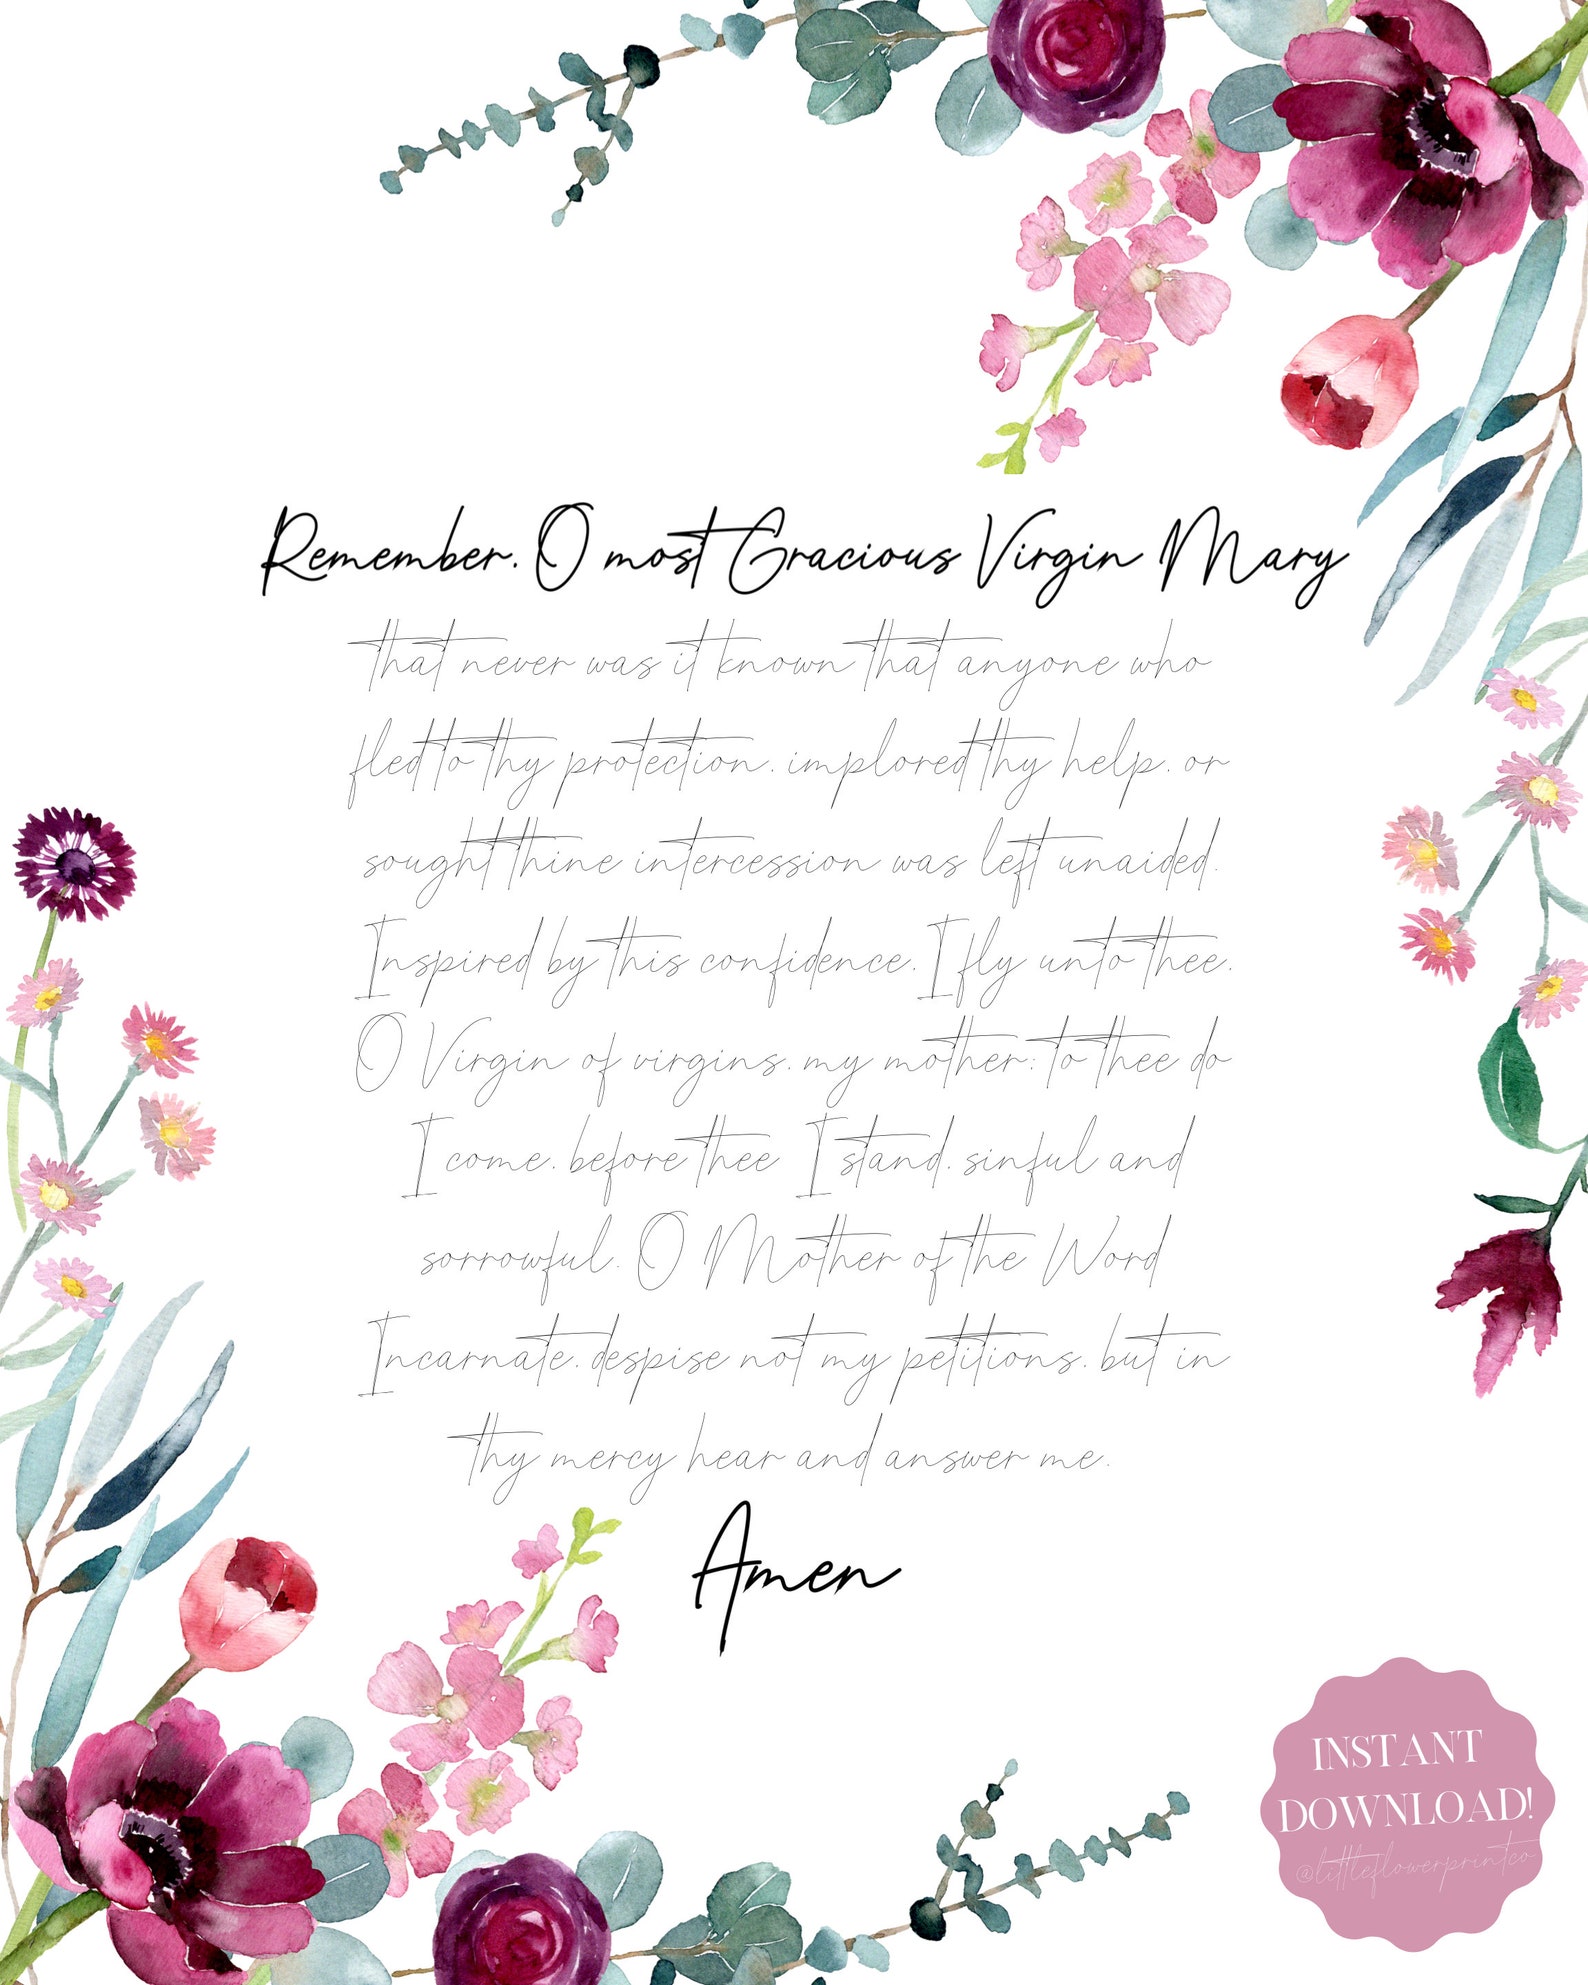 Remember, O most Gracious Virgin Mary
that never was it known that anyone who
fled to thy protection, implored thy help, or
sought thine intercession was left unaided.
Inspired by this confidence, I fly unto thee,
O Virgin of virgins, my mother; to thee do
I come, before thee I stand, sinful and
sorrowful. O Mother of the Word
Incarnate, despise not my petitions, but in
thy mercy hear and answer me.
Amen
INSTANT
DOWNLOAD!
@littleflowerprintco